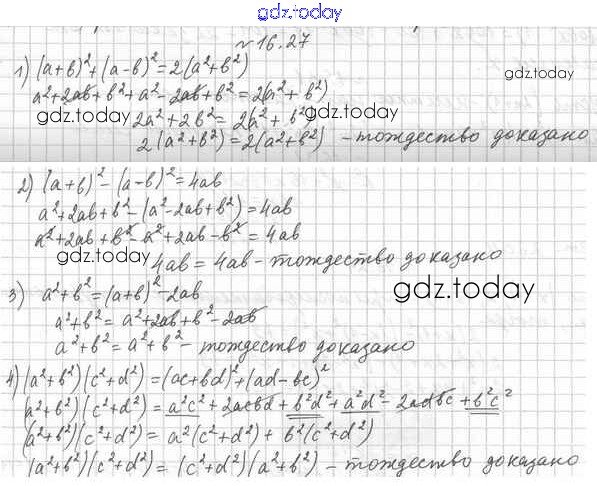 gdz.today
№ 16.27
1) (a+b)²+(a-b)²=2(a²+b²)
gdz.today
a²+2ab+b²+a²-2ab+b²=2(a²+b²)
gdz.today
2a²+2b²=2(a²+b²)
gdz.today
2(a²+b²)=2(a²+b²) - тождество доказано
2) (a+b)²-(a-b)²=4ab
a²+2ab+b²-(a²-2ab+b²)=4ab
a²+2ab+b²-a²+2ab-b²=4ab
gdz.today
4ab=4ab-тождество доказано
3) a²+b²=(a+b)²-2ab
gdz.today
a²+b²=a²+2ab+b²-2ab
a²+b²=a²+b²- тождество доказано
4) (a²+b²)(c²+d²)=(ac+bd)²+(ad-bc)²
(a²+b²)(c²+d²)=a²c²+2acbd+b²d²+a²d²-2adbc+b²c²
(a²+b²)(c²+d²)=a²(c²+d²)+b²(c²+d²)
(a²+b²)(c²+d²)=(c²+d²)(a²+b²)-тождество доказано